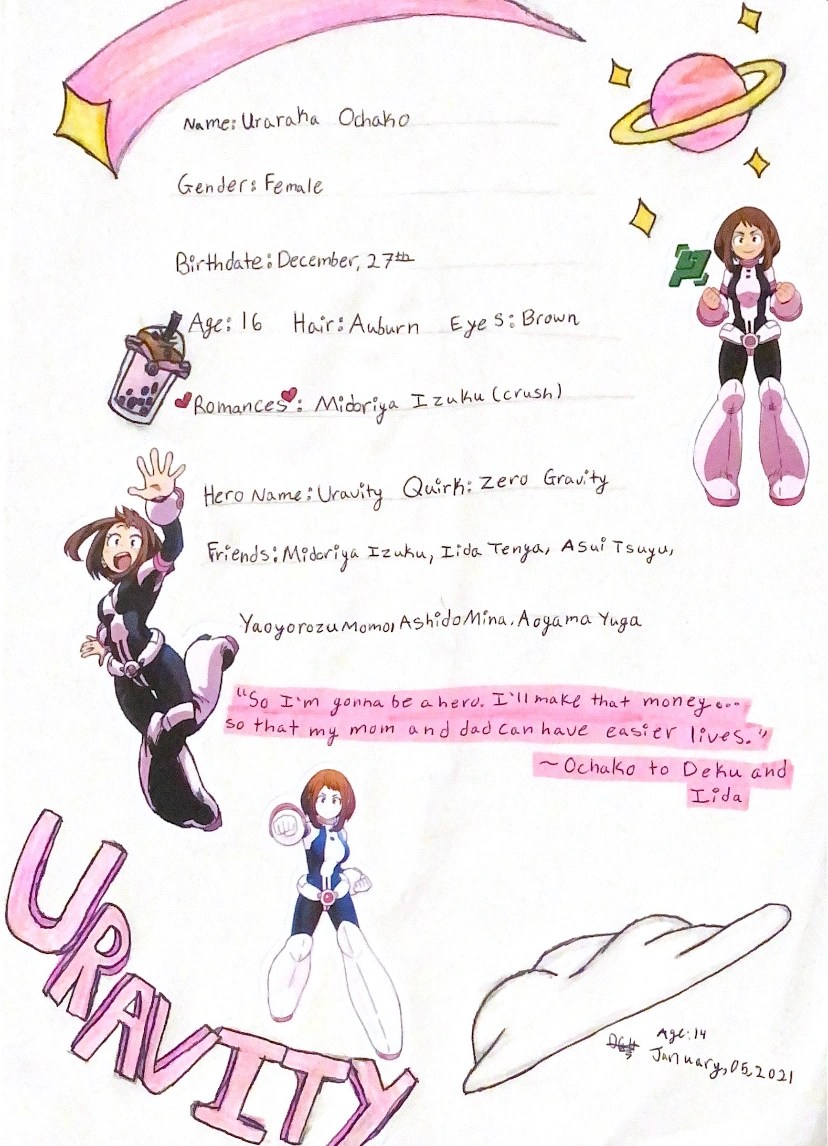 Name: Uraraka Ochako
Gender: Female
Birthdate: December, 27th
Age: 16 Hair: Auburn Eyes: Brown
Romances: Midoriya Izuku (crush)
Hero Name: Uravity Quirk: Zero Gravity
Friends: Midoriya Izuku, Iida Tenya, Asui Tsuyu,
Yaoyorozu Momo, Ashido Mina, Aogama Yuga
"So I'm gonna be a hero. I'll make that money...
so that my mom and dad can have easier lives."
~Ochako to Deku and
Iida
URAVITY
Age: 14
January, 05, 2021